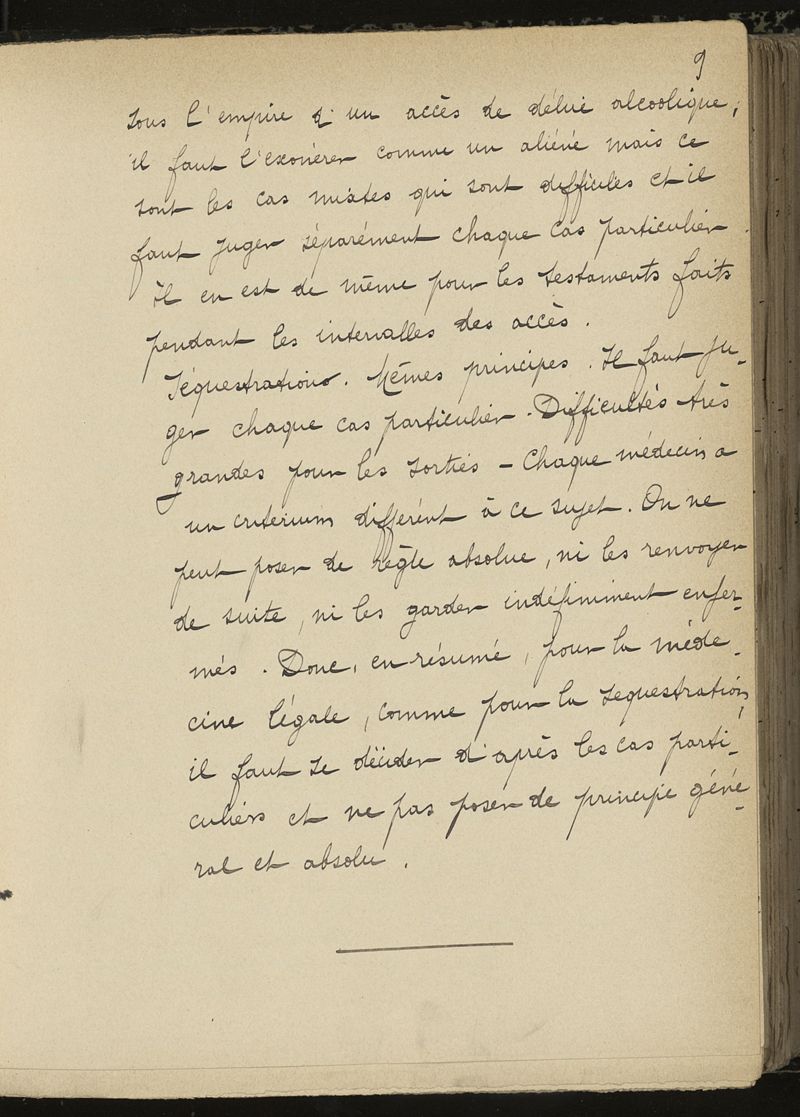 9
sous l'empire d'un accès de délire alcoolique,
il faut l'exonérer comme un aliéné mais ce
sont les cas mixtes qui sont difficiles et il
faut juger séparément chaque cas particulier.
Il en est de même pour les testaments faits
pendant les intervalles des accès.
Séquestrations. Mêmes principes. Il faut ju-
ger chaque cas particulier. Difficultés très
grandes pour les sorties - Chaque médecin a
un criterium différent à ce sujet. On ne
peut poser de règle absolue, ni les renvoyer
de suite, ni les garder indéfiniment enfer-
més. Donc, en résumé, pour la méde-
cine légale, comme pour la séquestration,
il faut se décider d'après les cas parti-
culiers et ne pas poser de principe géné-
ral et absolu.